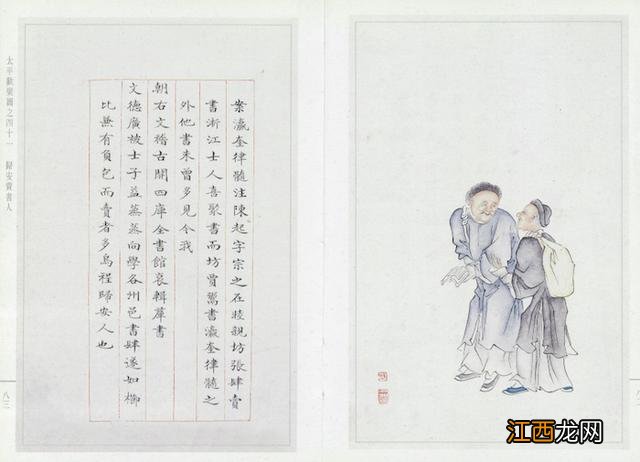 案瀛奎律髓注陳起字宗之在睦親坊張肆賣
書浙江士人喜聚書而坊賈鬻書瀛奎律髓之
外他書未曾多見今我
朝右文稽古開四庫全書館裒輯羣書
文德廣被士子益蒸蒸向學各州邑書肆遂如櫛
比兼有負包而賣者多烏程歸安人也
太平歡樂圖之四十一 歸安賣書人
八三
江西龙网